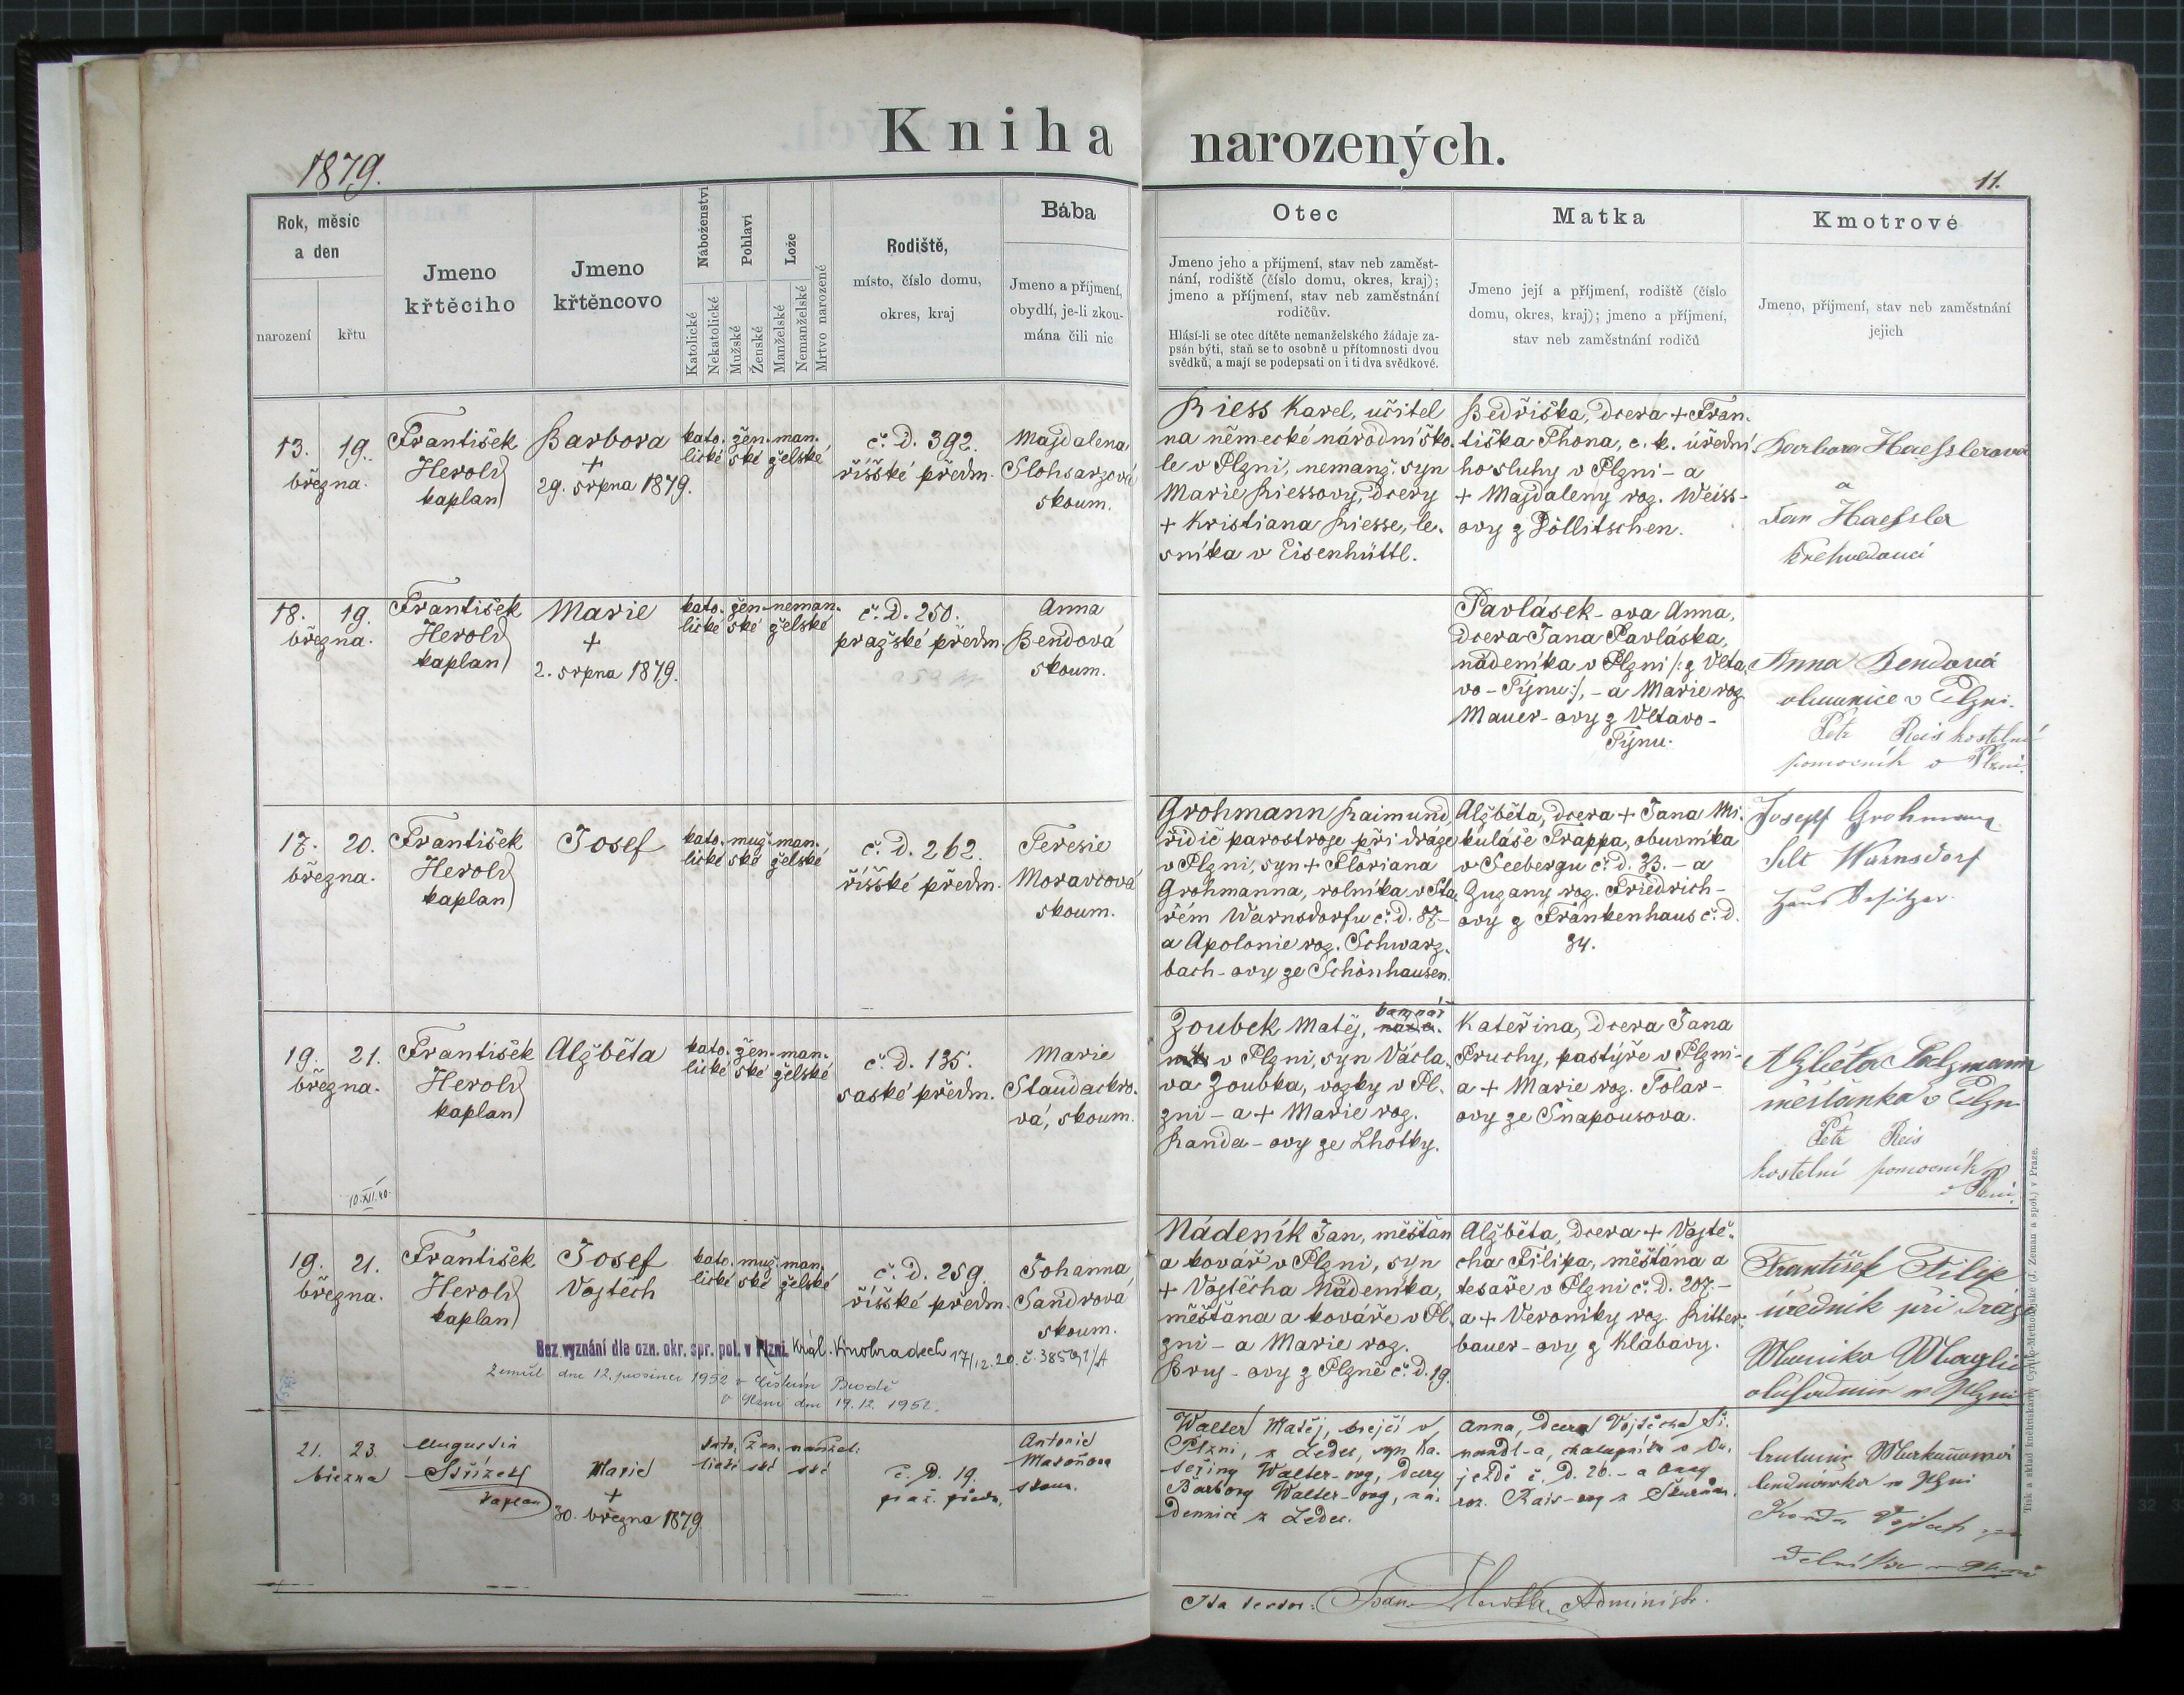 Kniha narozených.
1879.
11.
Rok, měsíc
a den
narození
křtu
Jmeno
křtěcího
Jmeno
křtěncovo
Náboženství
Katolické
Nekatolické
Pohlaví
Mužské
Ženské
Lože
Manželské
Nemanželské
Mrtvo narozené
Rodiště,
místo, číslo domu,
okres, kraj
Bába
Jmeno a příjmení,
obydlí, je-li zkou-
mána čili nic
Otec
Jmeno jeho a příjmení, stav neb zaměst-
nání, rodiště (číslo domu, okres, kraj);
jmeno a příjmení, stav neb zaměstnání
rodičův.
Hlásí-li se otec dítěte nemanželského žádaje za-
psán býti, staň se to osobně u přítomnosti dvou
svědků, a mají se podepsati on i ti dva svědkové.
Matka
Jmeno její a příjmení, rodiště (číslo
domu, okres, kraj); jmeno a příjmení,
stav neb zaměstnání rodičů
Kmotrové
Jmeno, příjmení, stav neb zaměstnání
jejich
13. 19.
března.
František
Herold
kaplan
Barbora
+
29. srpna 1879.
kato. žen. man.
lické ské želské
č. D. 392.
říšské předm.
Majdalena
skoum.
Riess Karel, učitel
na německé národní ško.
le v Plzni, nemanž. syn
Marie Riessovy, dcery
+ Kristiana Riesse, le.
sníka v Eisenhüttl.
Bedřiška, dcera + Fran.
tiška Thona, c. k. úřední
ho sluhy v Plzni - a
+ Majdaleny roz. Weiss-
ovy z Döllitschen.
Barbara Haesslerová
a
Jan Haessler
18. 19.
března.
František
Herold
kaplan
Marie
+
2. srpna 1879.
kato. žen. neman.
lické ské želské
č. D. 250.
pražské předm.
Anna
Bendová
skoum.
Pavlásek-ova Anna,
dcera Jana Pavláska,
nádeníka v Plzni /: z Vlta.
vo-Týnu :/, - a Marie roz.
Mauer-ovy z Vltavo-
Týnu.
Anna Bendová
v Plzni.
Petr Reis kostelní
pomocník v Plzni.
17. 20.
března.
František
Herold
kaplan
Josef
kato. muž. man.
lické ské želské
č. D. 262.
říšské předm.
Teresie
Moravcová
skoum.
Grohmann Raimund,
řidič parostroje při dráze
v Plzni, syn + Floriana
Grohmanna, rolníka v Sta.
rém Warnsdorfu č. D. 87 -
a Apolonie roz. Schwarz.
bach-ovy ze Schönhausen.
Alžběta, dcera + Jana Mi.
kuláše Trappa, obuvníka
v Seebergu č. D. 33. - a
Zuzany roz. Friedrich-
ovy z Frankenhaus č. D.
34.
Josef Grohmann
Alt Warnsdorf
Haus Besitzer
19. 21.
března.
10.XII.40.
František
Herold
kaplan
Alžběta
kato. žen. man.
lické ské želské
č. D. 135.
saské předm.
Marie
Staudackro.
vá, skoum.
Zoubek Matěj,
v Plzni, syn Václa.
va Zoubka, vozky v Pl.
zni - a + Marie roz.
Randa-ovy ze Lhotky.
Kateřina, dcera Jana
Pruchy, pastýře v Plzni -
a + Marie roz. Tolar-
ovy ze Šnapousova.
Alžběta Salzmann
měšťanka v Plzni
Petr Reis
kostelní pomocník
v Plzni.
19. 21.
března.
František
Herold
kaplan
Josef
Vojtěch
kato. muž. man.
lické ské želské
č. D. 259.
říšské předm.
Johanna
Sandrová
skoum.
Bez vyznání dle ozn. okr. spr. pol. v Plzni. Král. Vinohradech 17/12.20. č. 38591/A
Zemřel dne 12. prosince 1952 v Českém Brodě
V Plzni dne 19.12. 1952.
Nádeník Jan, měšťan
a kovář v Plzni, syn
+ Vojtěcha Nádeníka,
měšťana a kováře v Pl.
zni - a Marie roz.
Bruj-ovy z Plzně č. D. 19.
Alžběta, dcera + Vojtě.
cha Filipa, měšťana a
tesaře v Plzni č. D. 207. -
a + Veroniky roz. Ritter.
bauer-ovy z Klabavy.
František Filip
úředník při dráze
v Plzni
21. 23.
března
Augustin
Střízek
kaplan
Marie
+
30. března 1879.
kato. žen. manžel.
lické ské ské
č. D. 19.
praž. předm.
Antonie
Masoňova
skoum.
Walter Matěj, krejčí v
Plzni, z Ledec, syn Ka.
teřiny Walter-ovy, dcery
Barbory Walter-ovy, ná.
dennice z Ledec.
Anna, dcera Vojtěcha Ši.
mandl-a, chalupníka v
č. D. 26. - a Anny
roz. Rais-ovy z
v Plzni
Vojtěch
Jan Administr.
Tisk a sklad knihtiskárny Cyrillo-Methodějské (J. Zeman a spol.) v Praze.